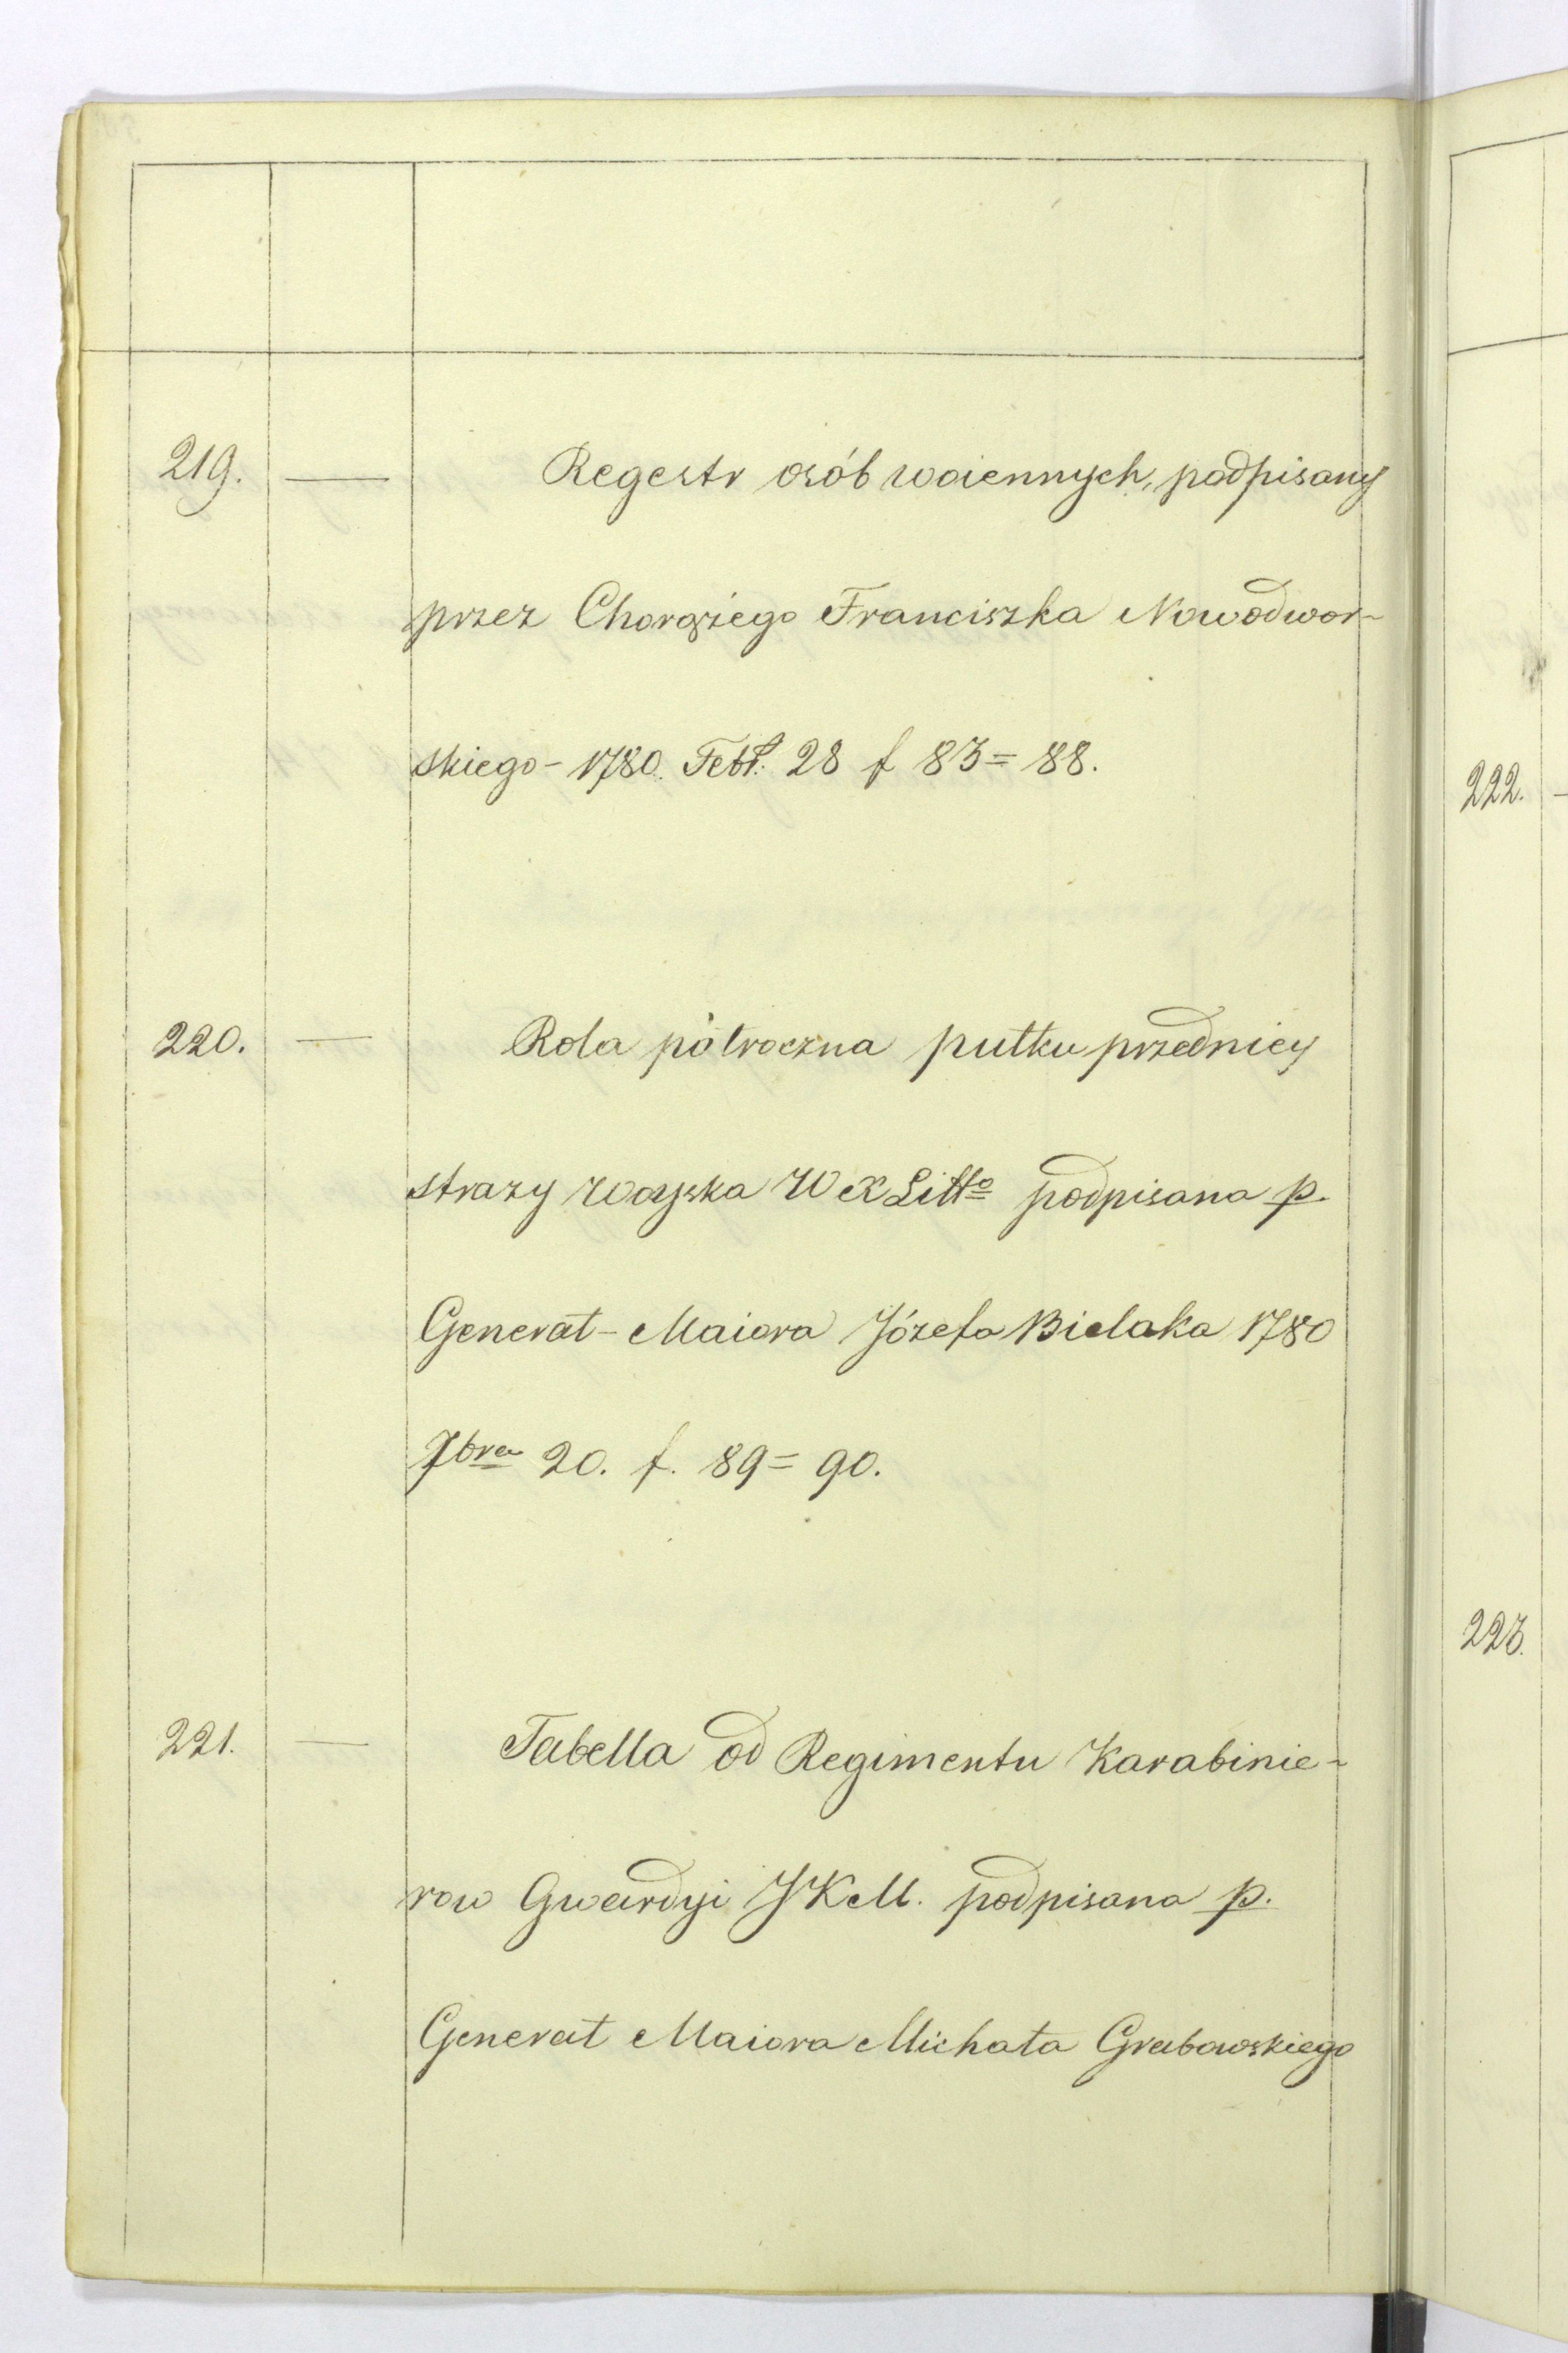 219. — Regestr osób woiennych, podpisany
przez Chorążego Franciszka Nowodwor-
skiego - 1780. Febr: 28 f 83 = 88.
220. — Rola półroczna pułku przedniey
strazy Woyska W X Litto podpisana p.
Generał - Maiora Józefa Bielaka 1780
7bra 20. f. 89 = 90.
221. — Tabella od Regimentu Karabinie-
row Gwardyi JKM. podpisana p.
Generał Maiora Michała Grabowskiego
222.
223.